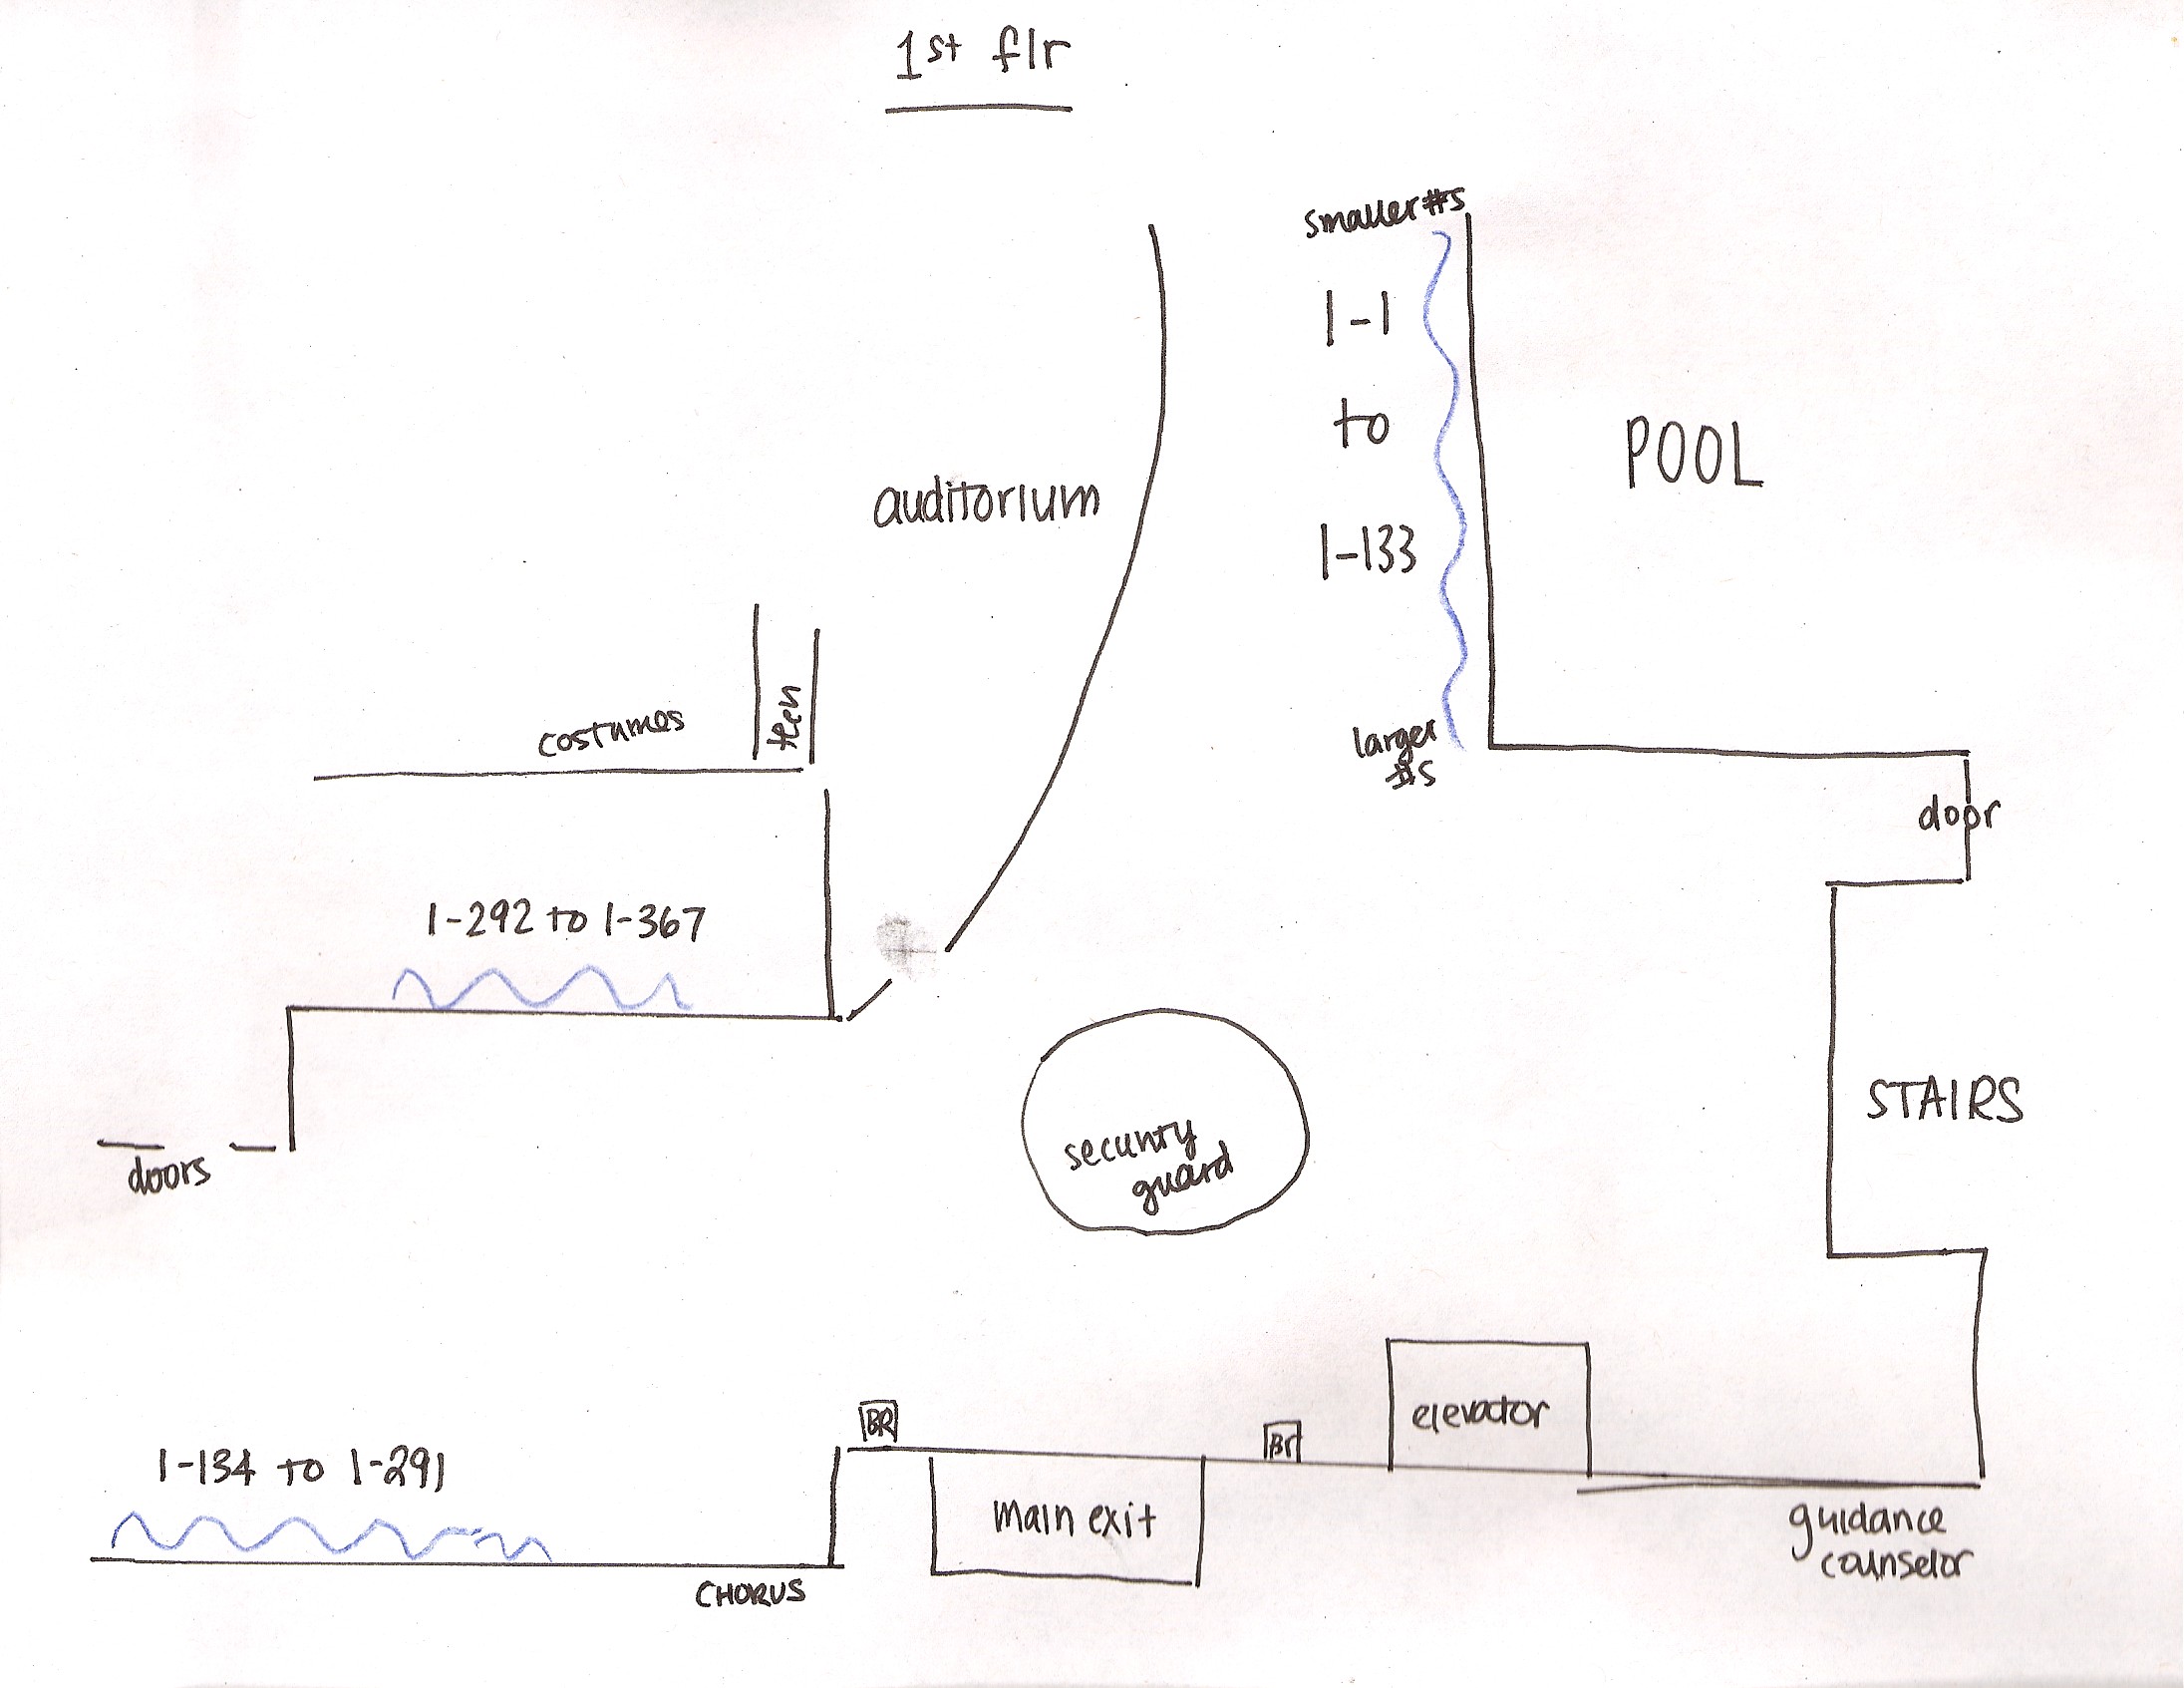 1st flr
smaller #s
1-1
to
1-133
larger
#s
POOL
auditorium
teen
costumes
door
1-292 to 1-367
doors
security
guard
STAIRS
BR
Br
elevator
1-134 to 1-291
main exit
guidance
counselor
CHORUS